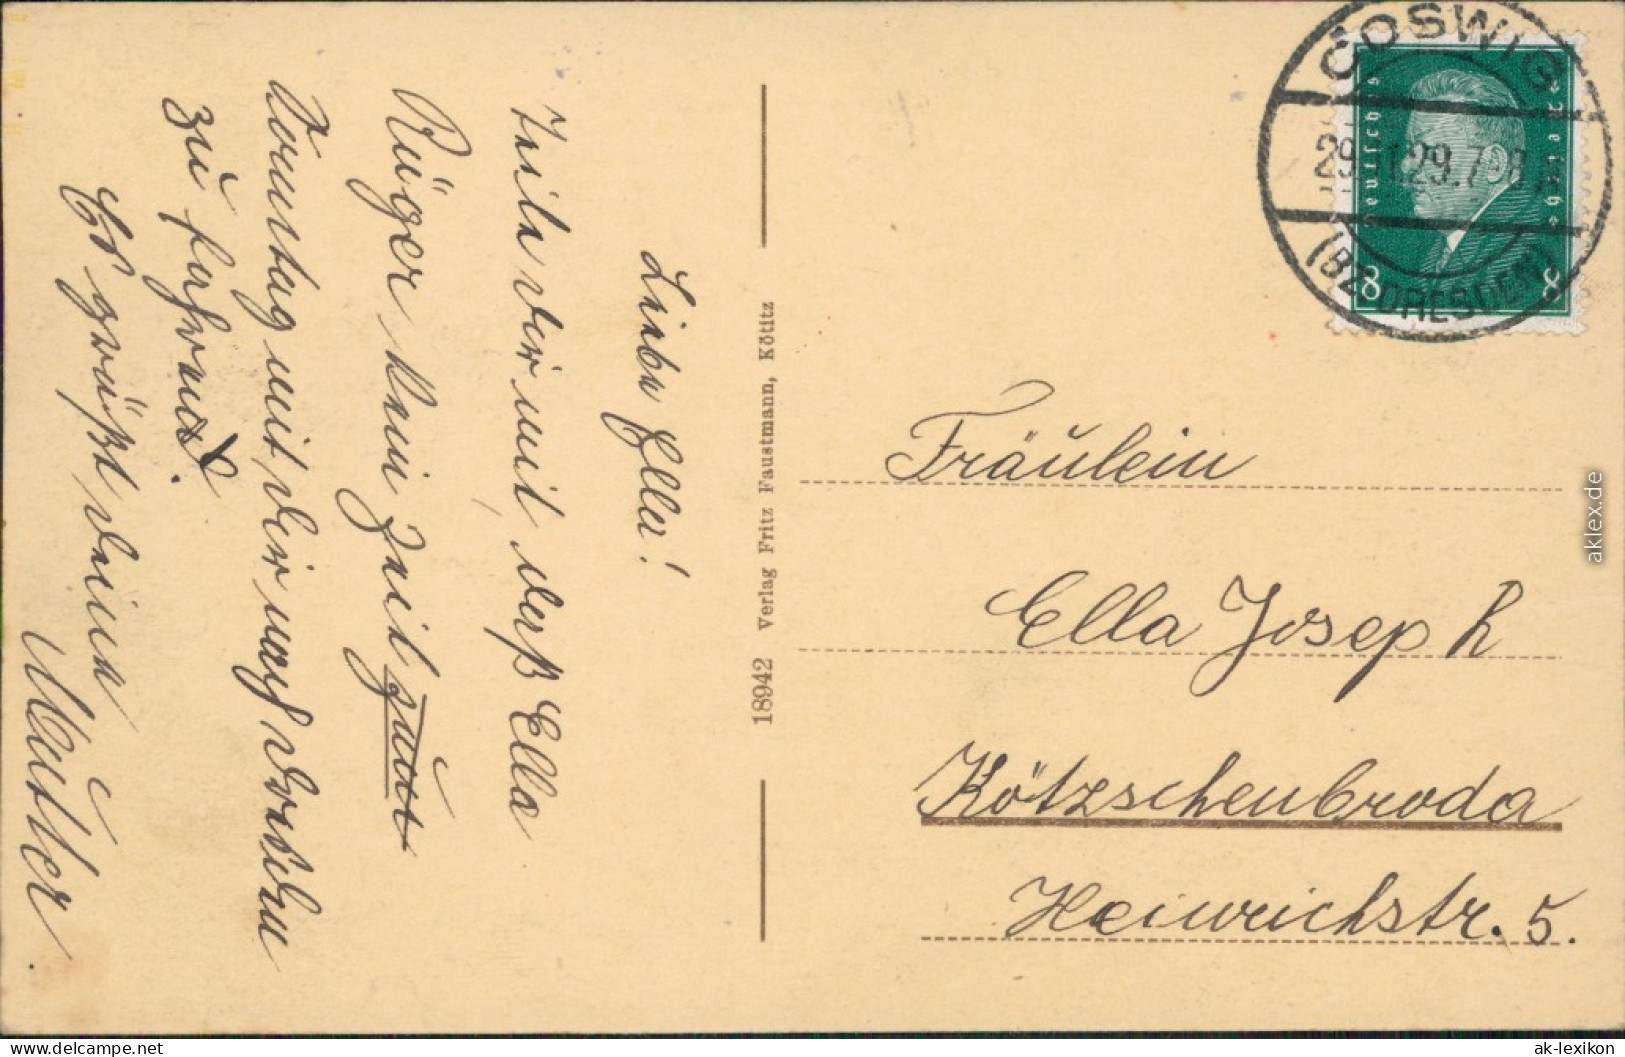 Liebe Ella!
Teile dir mit, daß Ella
Rüger kein Zeit hat
Sonntag mit dir nach Dresden
zu fahren.
Es grüßt deine
Mutter.
18942 Verlag Fritz Faustmann, Kötitz
COSWIG
(BZ. DRESDEN)
Deutsches Reich
8 8
Fräulein
Ella Joseph
Kötzschenbroda
Heinrichstr. 5.
aklex.de
www.delcampe.net
ak-lexikon